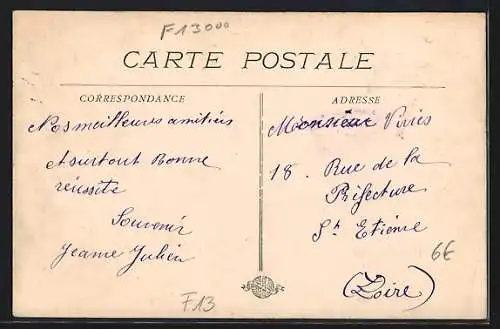 F13000
CARTE POSTALE
CORRESPONDANCE
Nos meilleures amitiés
et surtout Bonne
réussite
Souvenir
Jeanne Julien
F13
ADRESSE
Monsieur
18. Rue de la
Préfecture
St Etienne
(Loire)
6€